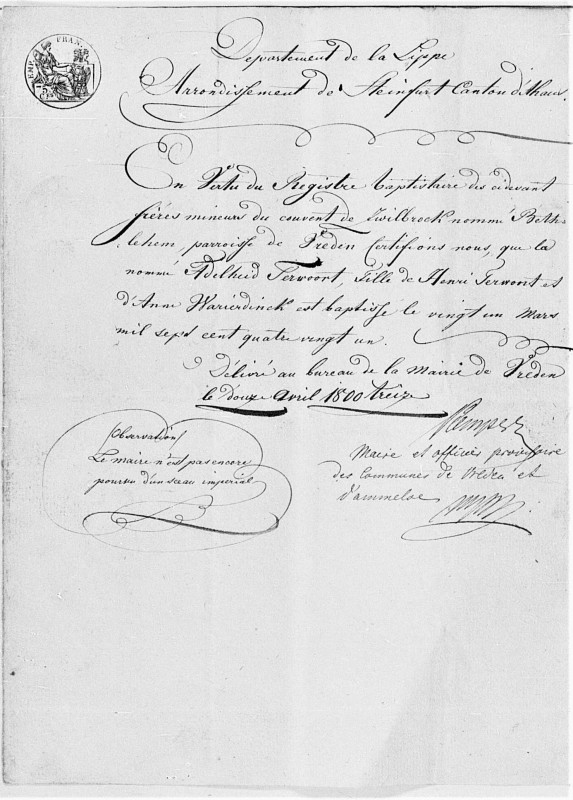 EMP. FRAN.
Departement de la Lippe
Arrondissement de Steinfurt Canton d'Ahaus
En Vertu du Registre baptistaire des cidevant
fréres mineurs du couvent de Zwilbrock nommé Beth-
lehem, parroisse de Vreden Certifions nous, que la
nommé Adelheid Terwoort, Fille de Henri Terwoort et
d'Anne Warierdinck est baptisse le vingt un Mars
mil sept cent quatre vingt un.
Délivré au bureau de la Mairie de Vreden
le Douze Avril 1800 treize
Observation
Le maire n'est pas encore
pourvu d'un sceau imperial
Maire et officier provisoire
des Communes de Vreden et
d'ammeloe